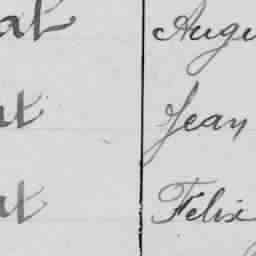 at Augu
ut Jean
ut Felix